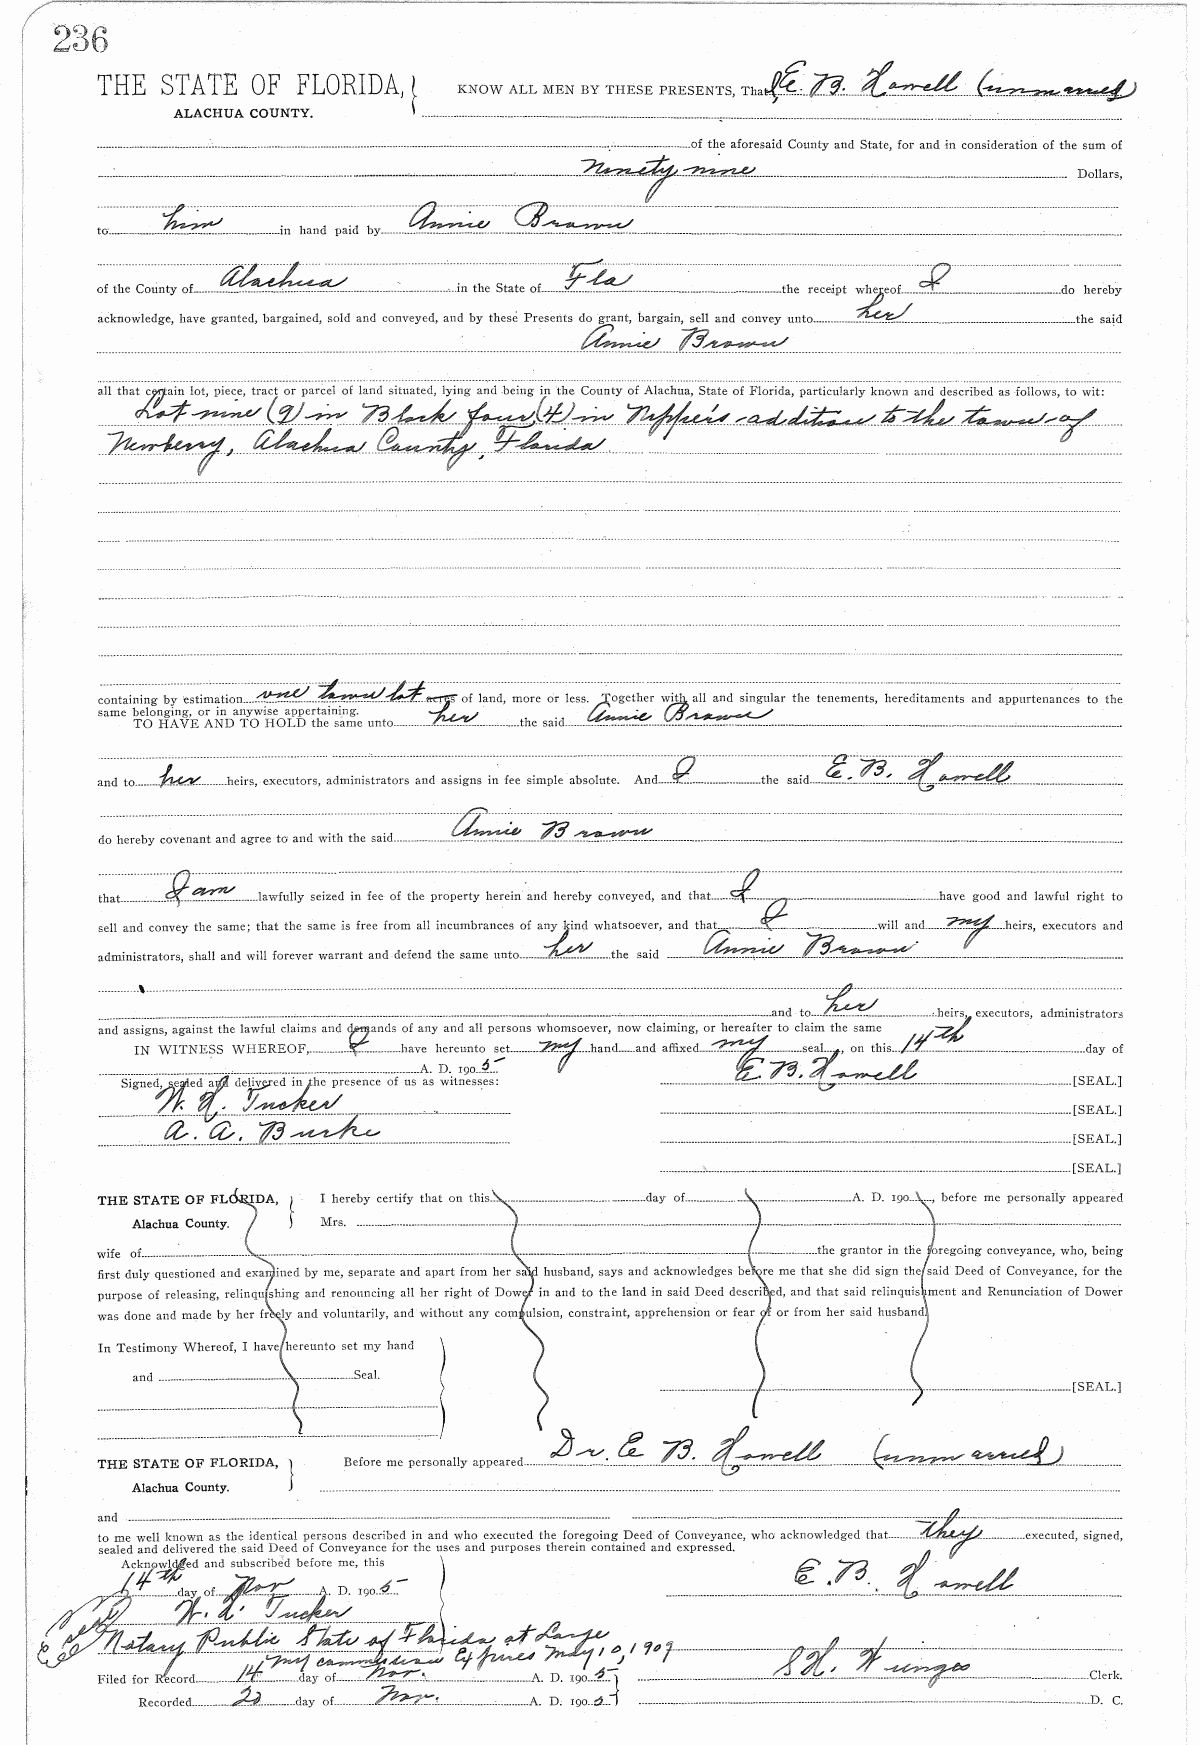 236
THE STATE OF FLORIDA,
ALACHUA COUNTY.
KNOW ALL MEN BY THESE PRESENTS, That I, E. B. Howell (unmarried)
of the aforesaid County and State, for and in consideration of the sum of
Ninety nine Dollars,
to him in hand paid by Annie Brown
of the County of Alachua in the State of Fla the receipt whereof I do hereby
acknowledge, have granted, bargained, sold and conveyed, and by these Presents do grant, bargain, sell and convey unto her the said
Annie Brown
all that certain lot, piece, tract or parcel of land situated, lying and being in the County of Alachua, State of Florida, particularly known and described as follows, to wit:
Lot nine (9) in Block four (4) in Nippers addition to the town of
Newberry, Alachua County, Florida
containing by estimation one town lot acres of land, more or less. Together with all and singular the tenements, hereditaments and appurtenances to the
same belonging, or in anywise appertaining.
TO HAVE AND TO HOLD the same unto her the said Annie Brown
and to her heirs, executors, administrators and assigns in fee simple absolute. And I the said E. B. Howell
do hereby covenant and agree to and with the said Annie Brown
that I am lawfully seized in fee of the property herein and hereby conveyed, and that I have good and lawful right to
sell and convey the same; that the same is free from all incumbrances of any kind whatsoever, and that I will and my heirs, executors and
administrators, shall and will forever warrant and defend the same unto her the said Annie Brown
and to her heirs, executors, administrators
and assigns, against the lawful claims and demands of any and all persons whomsoever, now claiming, or hereafter to claim the same
IN WITNESS WHEREOF, I have hereunto set my hand and affixed my seal, on this 14th day of
A. D. 1905
Signed, sealed and delivered in the presence of us as witnesses: E. B. Howell [SEAL.]
W. H. Tucker [SEAL.]
A. A. Burke [SEAL.]
[SEAL.]
THE STATE OF FLORIDA,
Alachua County.
I hereby certify that on this day of A. D. 190 , before me personally appeared
Mrs.
wife of the grantor in the foregoing conveyance, who, being
first duly questioned and examined by me, separate and apart from her said husband, says and acknowledges before me that she did sign the said Deed of Conveyance, for the
purpose of releasing, relinquishing and renouncing all her right of Dower in and to the land in said Deed described, and that said relinquishment and Renunciation of Dower
was done and made by her freely and voluntarily, and without any compulsion, constraint, apprehension or fear of or from her said husband.
In Testimony Whereof, I have hereunto set my hand
and Seal.
[SEAL.]
THE STATE OF FLORIDA,
Alachua County.
Before me personally appeared Dr. E. B. Howell (unmarried)
and
to me well known as the identical persons described in and who executed the foregoing Deed of Conveyance, who acknowledged that they executed, signed,
sealed and delivered the said Deed of Conveyance for the uses and purposes therein contained and expressed.
Acknowldged and subscribed before me, this
14th day of Nov A. D. 1905 E. B. Howell
W. H. Tucker
Notary Public State of Florida at Large
my commission Expires May 10, 1909
Filed for Record 14 day of Nov. A. D. 1905 S. H. Wienges Clerk.
Recorded 20 day of Nov. A. D. 1905 D. C.